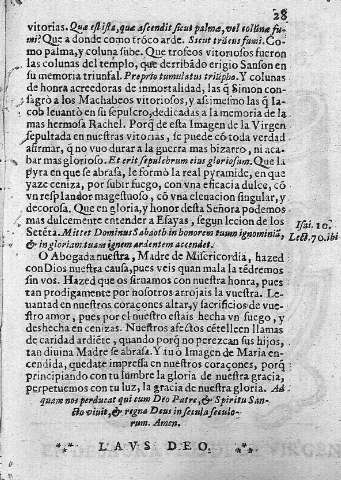 28
vitorias. Quæ est ista, quæ ascendit sicut palmæ, vel collunæ fu-
mi? Que a donde como trõco arde. Sicut virens fumi. Co-
mo palma, y coluna sube. Que trofeos vitoriosos fueron
las colunas del templo, que derribado erigio Sanson en
su memoria triunfal. Pro prio tumulatus triũpho. Y colunas
de honra acreedoras de inmortalidad, las q̃ Simon consa-
gró a los Machabeos vitoriosos, y assimesmo las q̃ Ia-
cob leuantò en su sepulcro, dedicadas a la memoria de la
mas hermosa Rachel. Porq̃ desta Imagen de la Virgen
sepultada en nuestras vitorias, se puede cõ toda verdad
afirmar, q̃ no vuo durar a la guerra mas bizarro, ni aca-
bar mas glorioso. Et erit sepulcrum eius gloriosum. Que la
pyra en que se abrasa, le formò la real pyramide, en que
yaze ceniza, por subir fuego, con vna eficacia dulce, cõ
vn resplandor magestuoso, cõ vna eleuacion singular, y
decorosa. Que en gloria, y honor desta Señora podemos
mas dulcemente entender a Esayas, segun lecion de los
Setẽta. Mittet Dominus Sabaoth in honorem tuum ignominiã,
& in gloriam tuam ignem ardentem accendet.
Isai. 10.
Lect. 70. ibi
O Abogada nuestra, Madre de Misericordia, hazed
con Dios nuestra causa, pues veis quan mala la tẽdremos
sin vos. Hazed que os siruamos con nuestra honra, pues
tan prodigamente por nosotros arrojais la vuestra. Le-
uantad en nuestros coraçones altar, y sacrificios de vue-
stro amor, pues por el nuestro estais hecha vn fuego, y
deshecha en cenizas. Nuestros afectos cẽtelleen llamas
de caridad ardiẽte, quando porq̃ no perezcan sus hijos,
tan diuina Madre se abrasa. Y tu ò Imagen de Maria en-
cendida, quedate impressa en nuestros coraçones, porq̃
principiando con tu lumbre la gloria de nuestra gracia,
perpetuemos con tu luz, la gracia de nuestra gloria. Ad
quam nos perducat qui cum Deo Patre, & Spiritu San-
cto viuit, & regnat Deus in secula seculo-
rum. Amen.
LAVS DEO.